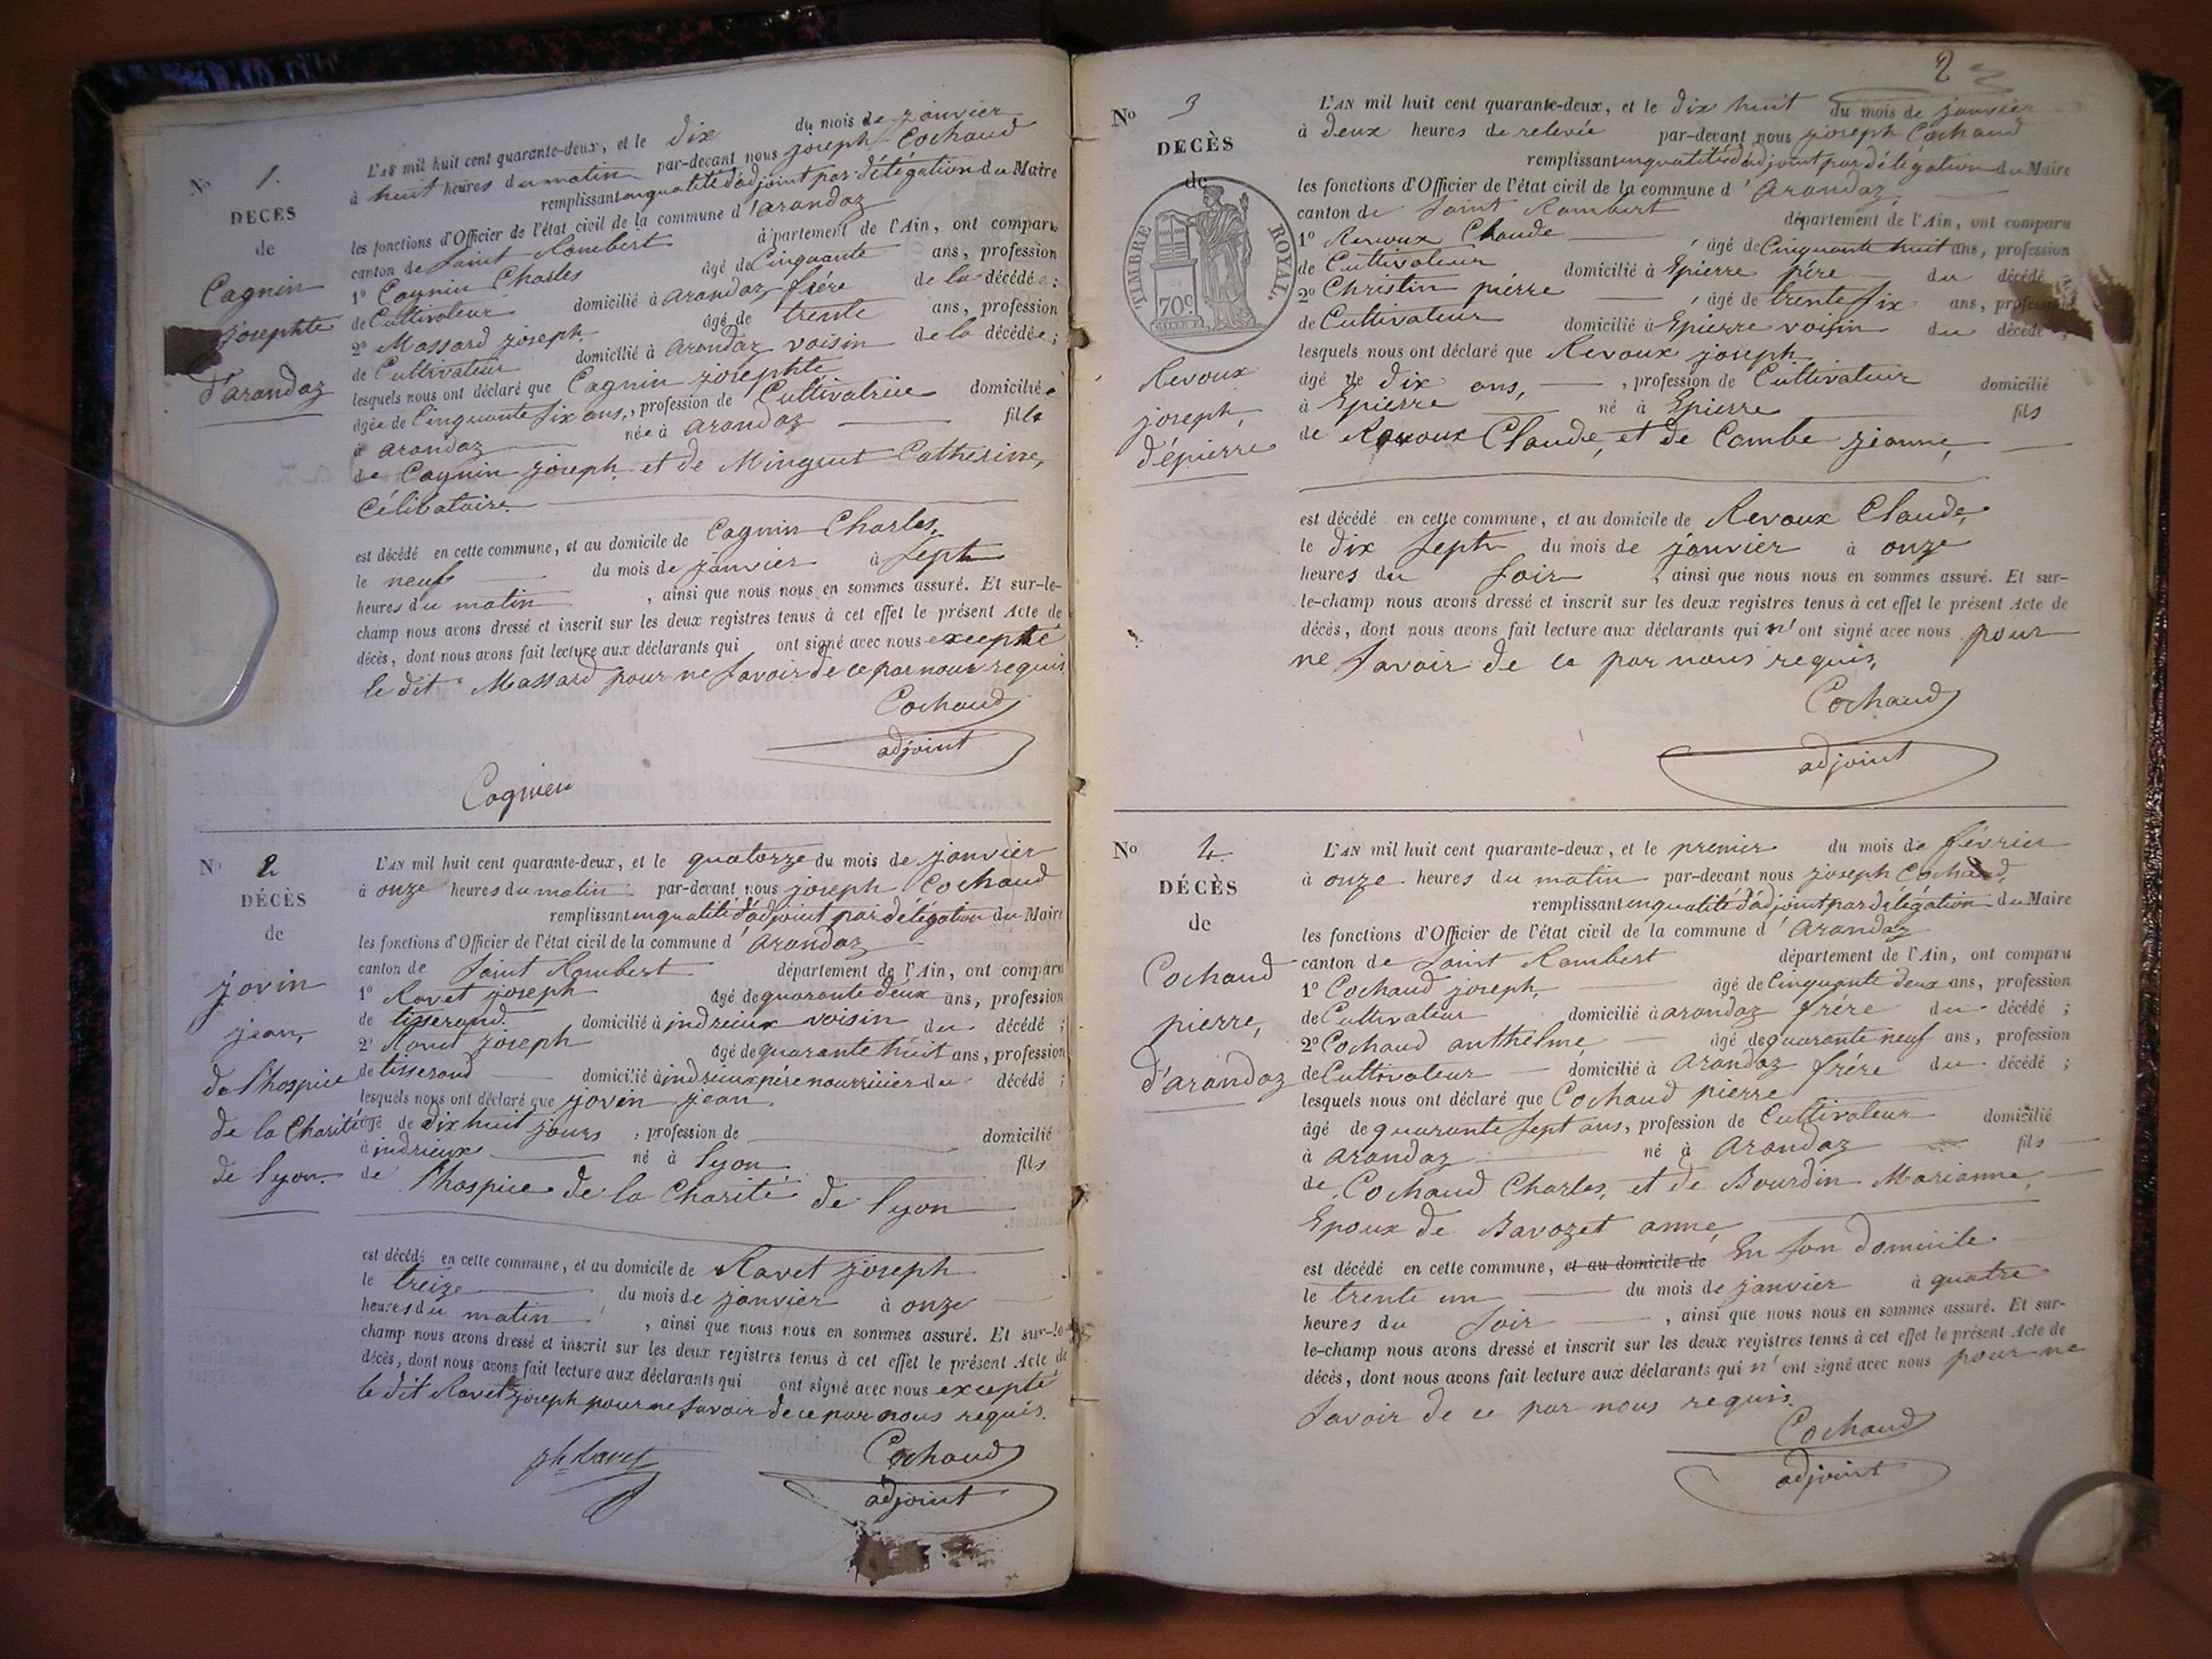 No 1.
DECÈS
de
Cagnin
josephte
d'arandaz
L'AN mil huit cent quarante-deux, et le dix du mois de janvier
à huit heures du matin par-devant nous joseph Cochaud
remplissant en qualité d'adjoint par délégation du Maire
les fonctions d'Officier de l'état civil de la commune d'arandaz
canton de Saint Rambert département de l'Ain, ont comparu
1o Cagnin Charles âgé de Cinquante ans, profession
de Cultivateur domicilié à arandaz frére de la décédée ;
2o Massard joseph. âgé de trente ans, profession
de Cultivateur domicilié à arandaz voisin de la décédée ;
lesquels nous ont déclaré que Cagnin josephte
âgée de Cinquante six ans, profession de Cultivatrice domiciliée
à arandaz née à arandaz fille
de Cagnin joseph et de Mingeut Catherine,
Célibataire.
est décédé en cette commune, et au domicile de Cagnin Charles,
le neuf du mois de janvier à sept
heures du matin, ainsi que nous nous en sommes assuré. Et sur-le-
champ nous avons dressé et inscrit sur les deux registres tenus à cet effet le présent Acte de
décès, dont nous avons fait lecture aux déclarants qui ont signé avec nous excepté
le dit Massard pour ne savoir de ce par nous requis.
Cochaud
adjoint
Cagnieu
No 2
DÉCÈS
de
jovin
jean,
de l'hospice
de la Charité
de lyon.
L'AN mil huit cent quarante-deux, et le quatorze du mois de janvier
à onze heures du matin par-devant nous joseph Cochaud
remplissant en qualité d'adjoint par délégation du Maire
les fonctions d'Officier de l'état civil de la commune d'arandaz
canton de Saint Rambert département de l'Ain, ont comparu
1o Ravet joseph âgé de quarante deux ans, profession
de tisserand. domicilié à indrieux voisin du décédé ;
2o Ravet joseph âgé de quarante huit ans, profession
de tisserand domicilié à indrieux pére nourricier du décédé ;
lesquels nous ont déclaré que joven jean.
âgé de dix huit jours, profession de domicilié
à indrieux né à lyon fils
de l'hospice de la Charité de lyon
est décédé en cette commune, et au domicile de Ravet joseph
le treize du mois de janvier à onze
heures du matin, ainsi que nous nous en sommes assuré. Et sur-le-
champ nous avons dressé et inscrit sur les deux registres tenus à cet effet le présent Acte de
décès, dont nous avons fait lecture aux déclarants qui ont signé avec nous excepté
le dit Ravet joseph pour ne savoir de ce par nous requis.
jh Ravet
Cochaud
adjoint
2
No 3
DECÈS
de
TIMBRE ROYAL.
70c.
Revoux
joseph,
d'épierre
L'AN mil huit cent quarante-deux, et le dix huit du mois de janvier
à deux heures de relevée par-devant nous joseph Cochaud
remplissant en qualité d'adjoint par délégation du Maire
les fonctions d'Officier de l'état civil de la commune d'arandaz,
canton de Saint Rambert département de l'Ain, ont comparu
1o Revoux Claude, âgé de Cinquante huit ans, profession
de Cultivateur domicilié à Epierre pére du décédé
2o Christin pierre, âgé de trente six ans, profession
de Cultivateur domicilié à Epierre voisin du décédé ;
lesquels nous ont déclaré que Revoux joseph
âgé de dix ans, , profession de Cultivateur domicilié
à Epierre né à Epierre fils
de Revoux Claude, et de Combe jeanne,
est décédé en cette commune, et au domicile de Revoux Claude,
le dix sept du mois de janvier à onze
heures du soir, ainsi que nous nous en sommes assuré. Et sur-
le-champ nous avons dressé et inscrit sur les deux registres tenus à cet effet le présent Acte de
décès, dont nous avons fait lecture aux déclarants qui n'ont signé avec nous pour
ne savoir de ce par nous requis,
Cochaud
adjoint
No 4.
DÉCÈS
de
Cochaud
pierre,
d'arandaz
L'AN mil huit cent quarante-deux, et le premier du mois de février
à onze heures du matin par-devant nous joseph Cochaud,
remplissant en qualité d'adjoint par délégation du Maire
les fonctions d'Officier de l'état civil de la commune d'arandaz
canton de Saint Rambert département de l'Ain, ont comparu
1o Cochaud joseph, âgé de Cinquante deux ans, profession
de Cultivateur domicilié à arandaz frére du décédé ;
2o Cochaud anthelme, âgé de quarante neuf ans, profession
de Cultivateur domicilié à arandaz frére du décédé ;
lesquels nous ont déclaré que Cochaud pierre
âgé de quarante sept ans, profession de Cultivateur domicilié
à arandaz né à arandaz fils
de Cochaud Charles, et de Bourdin Marianne,
Epoux de Bavozet anne,
est décédé en cette commune, et au domicile de En son domicile
le trente un du mois de janvier à quatre
heures du soir, ainsi que nous nous en sommes assuré. Et sur-
le-champ nous avons dressé et inscrit sur les deux registres tenus à cet effet le présent Acte de
décès, dont nous avons fait lecture aux déclarants qui n'ont signé avec nous pour ne
savoir de ce par nous requis.
Cochaud
adjoint